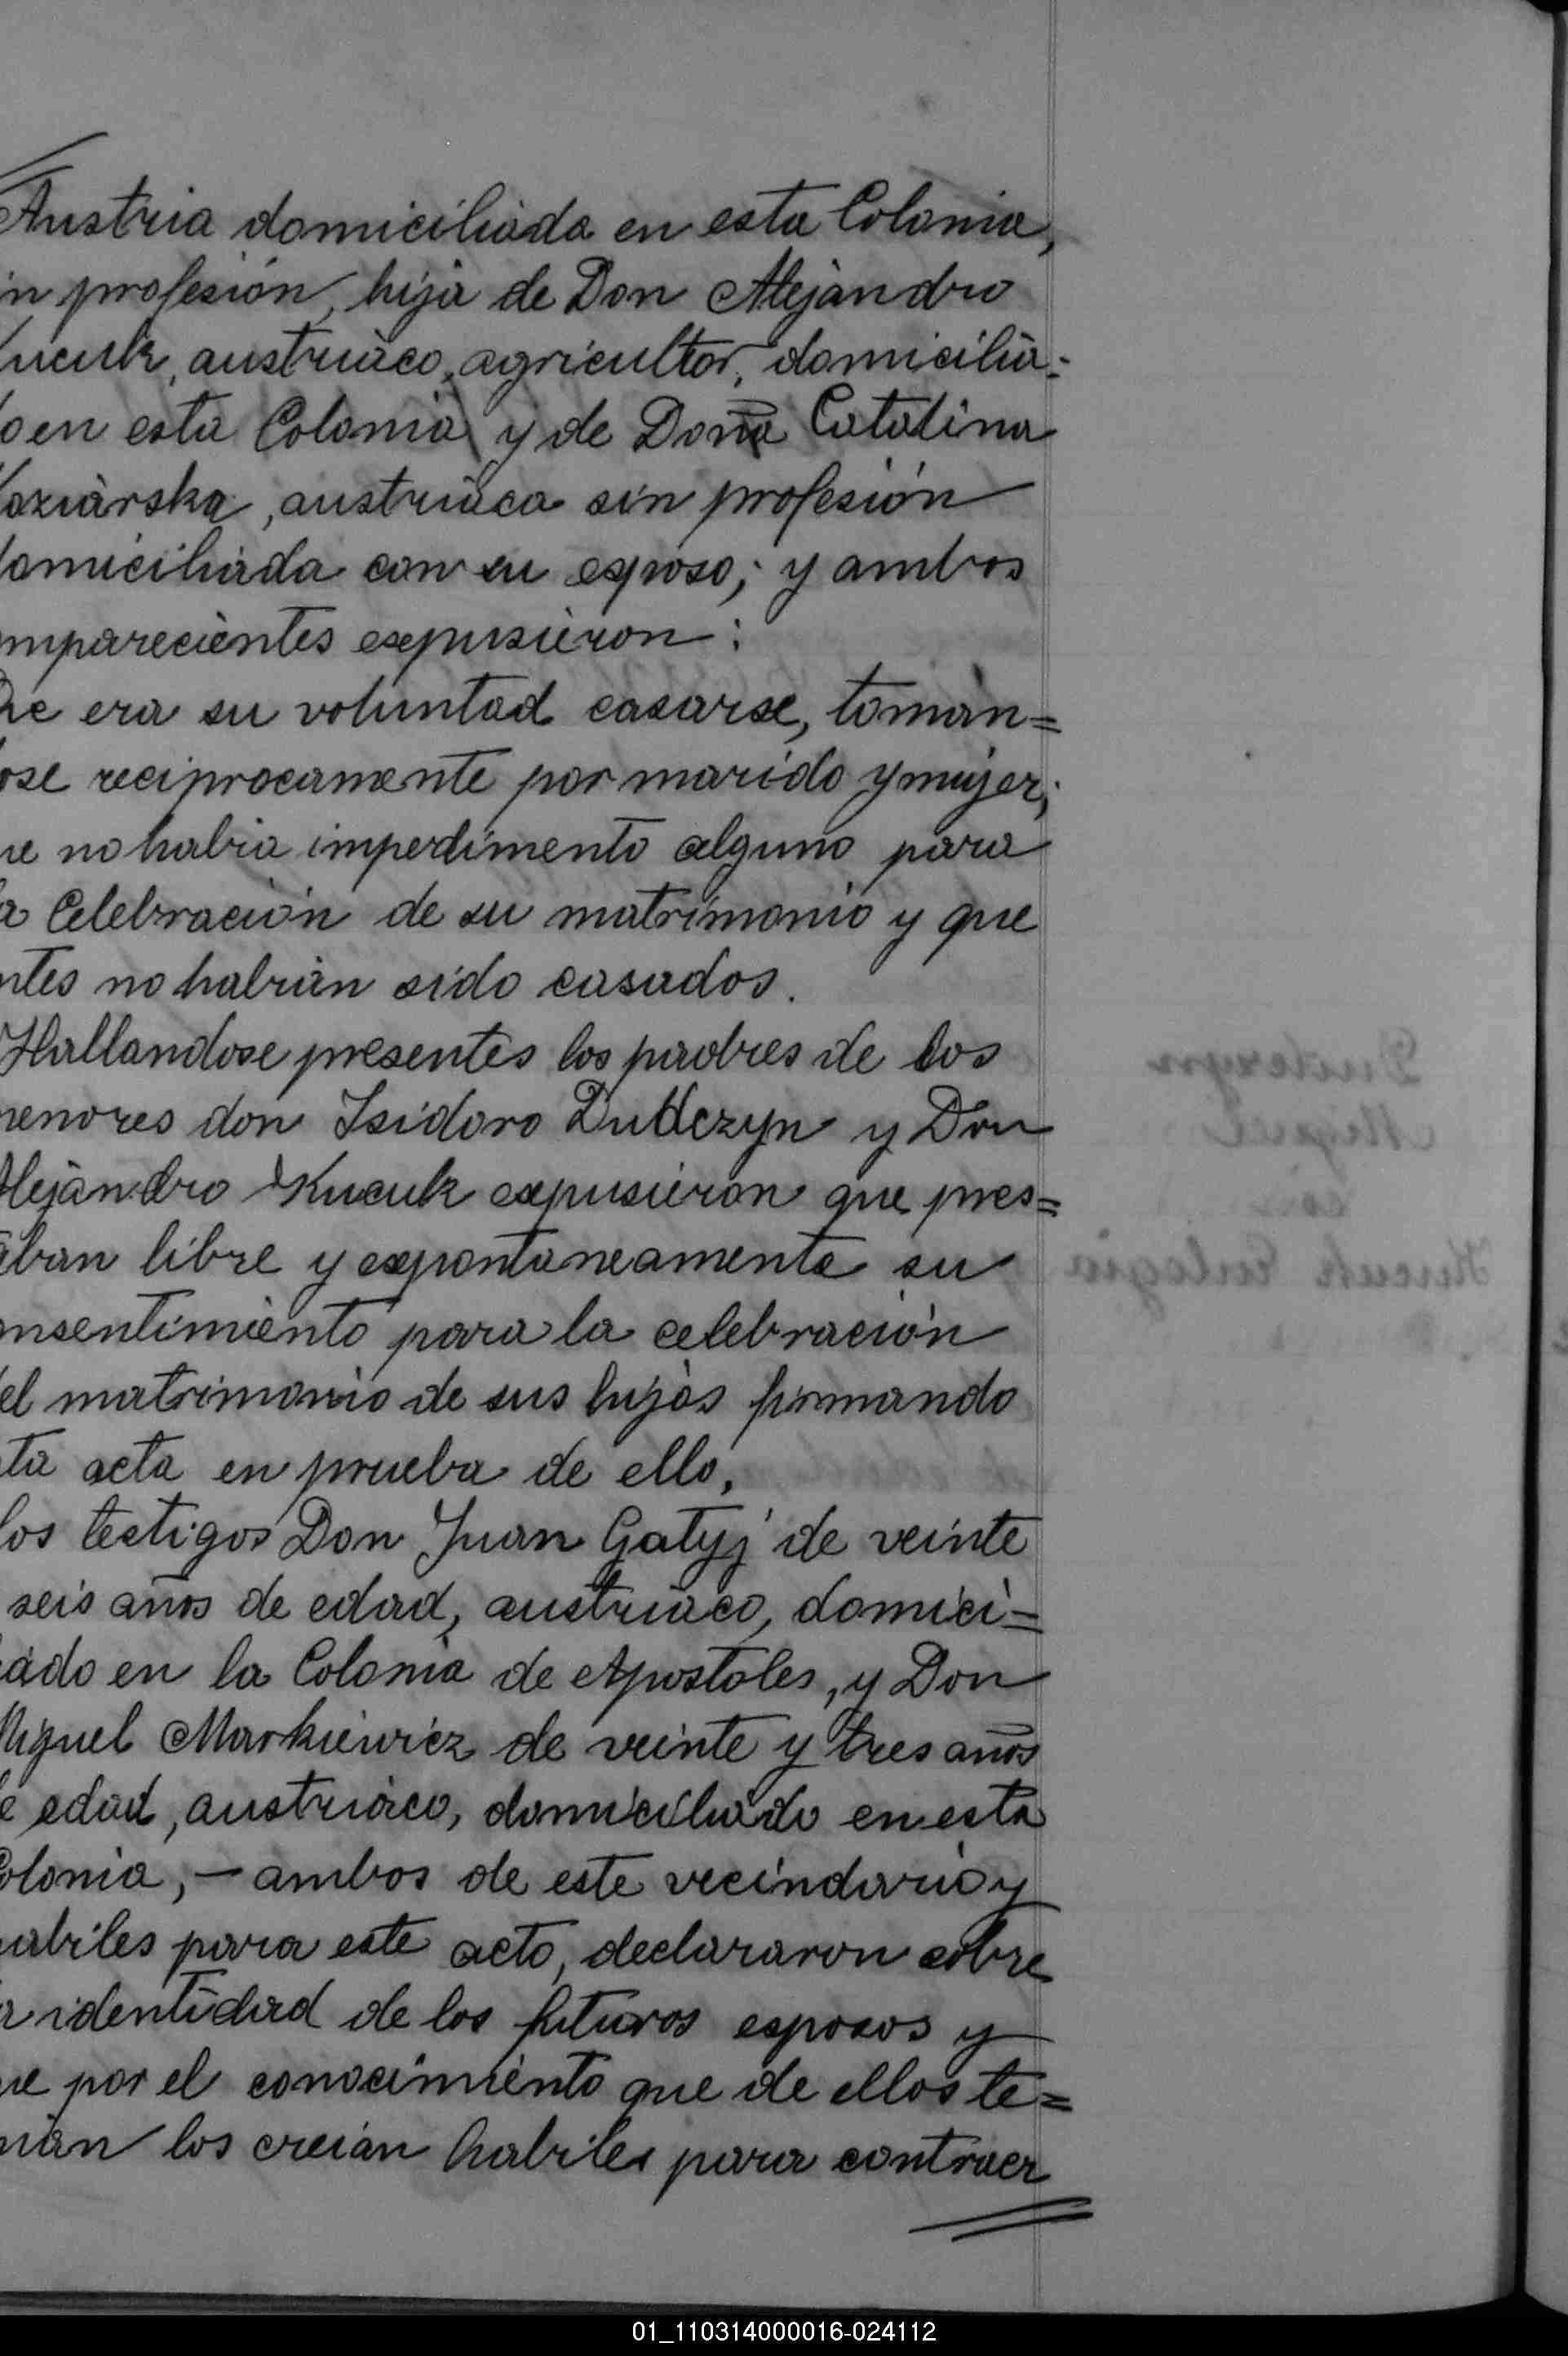 Austria domiciliada en esta Colonia,
in profesión, hija de Don Alejandro
Kucuk, austriaco, agricultor, domicilia=
do en esta Colonia y de Doña Catalina
Koziarska, austriaca sin profesión
domiciliada con su esposo; y ambos
omparecientes expusieron:
Que era su voluntad casarse, toman=
ose reciprocamente por marido y mujer;
ue no habia impedimento alguno para
a Celebración de su matrimonio y que
ntes no habian sido casados.
Hallandose presentes los padres de los
menores don Isidoro Dutczyn y Don
Alejandro Kucuk expusieron que pres=
aban libre y expontaneamente su
onsentimiento para la celebración
del matrimonio de sus hijos firmando
ta acta en prueba de ello,
los testigos Don Juan Gatyj de veinte
seis años de edad, austriaco, domici=
iado en la Colonia de Apostoles, y Don
Miguel Markiewicz de veinte y tres años
e edad, austriaco, domiciliado en esta
Colonia, — ambos de este vecindario y
habiles para este acto, declararon sobre
a identidad de los futuros esposos y
ue por el conocimiento que de ellos te=
nian los creian habiles para contraer
01_110314000016-024112